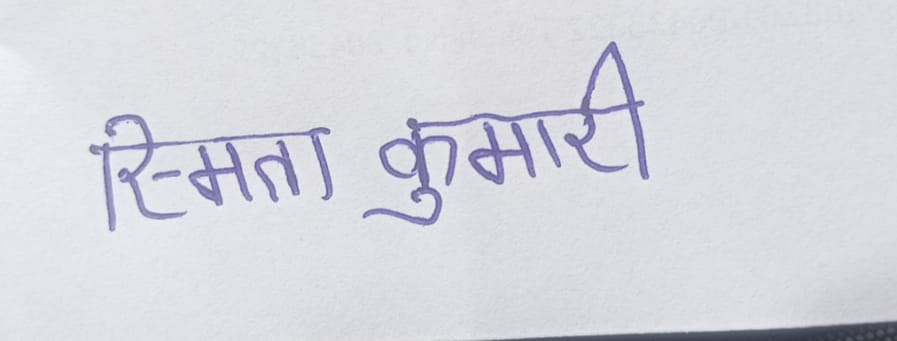 स्मिता कुमारी